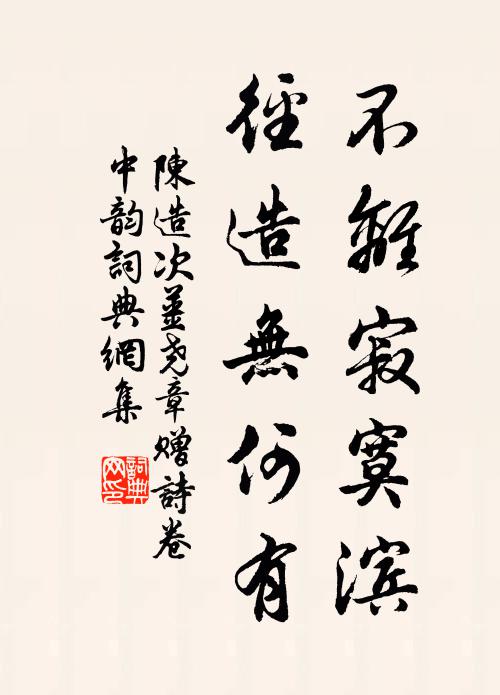 不離寂寞滨
徑造無何有
陳造次姜尧章赠詩卷
中韵詞典網集
詞典网印